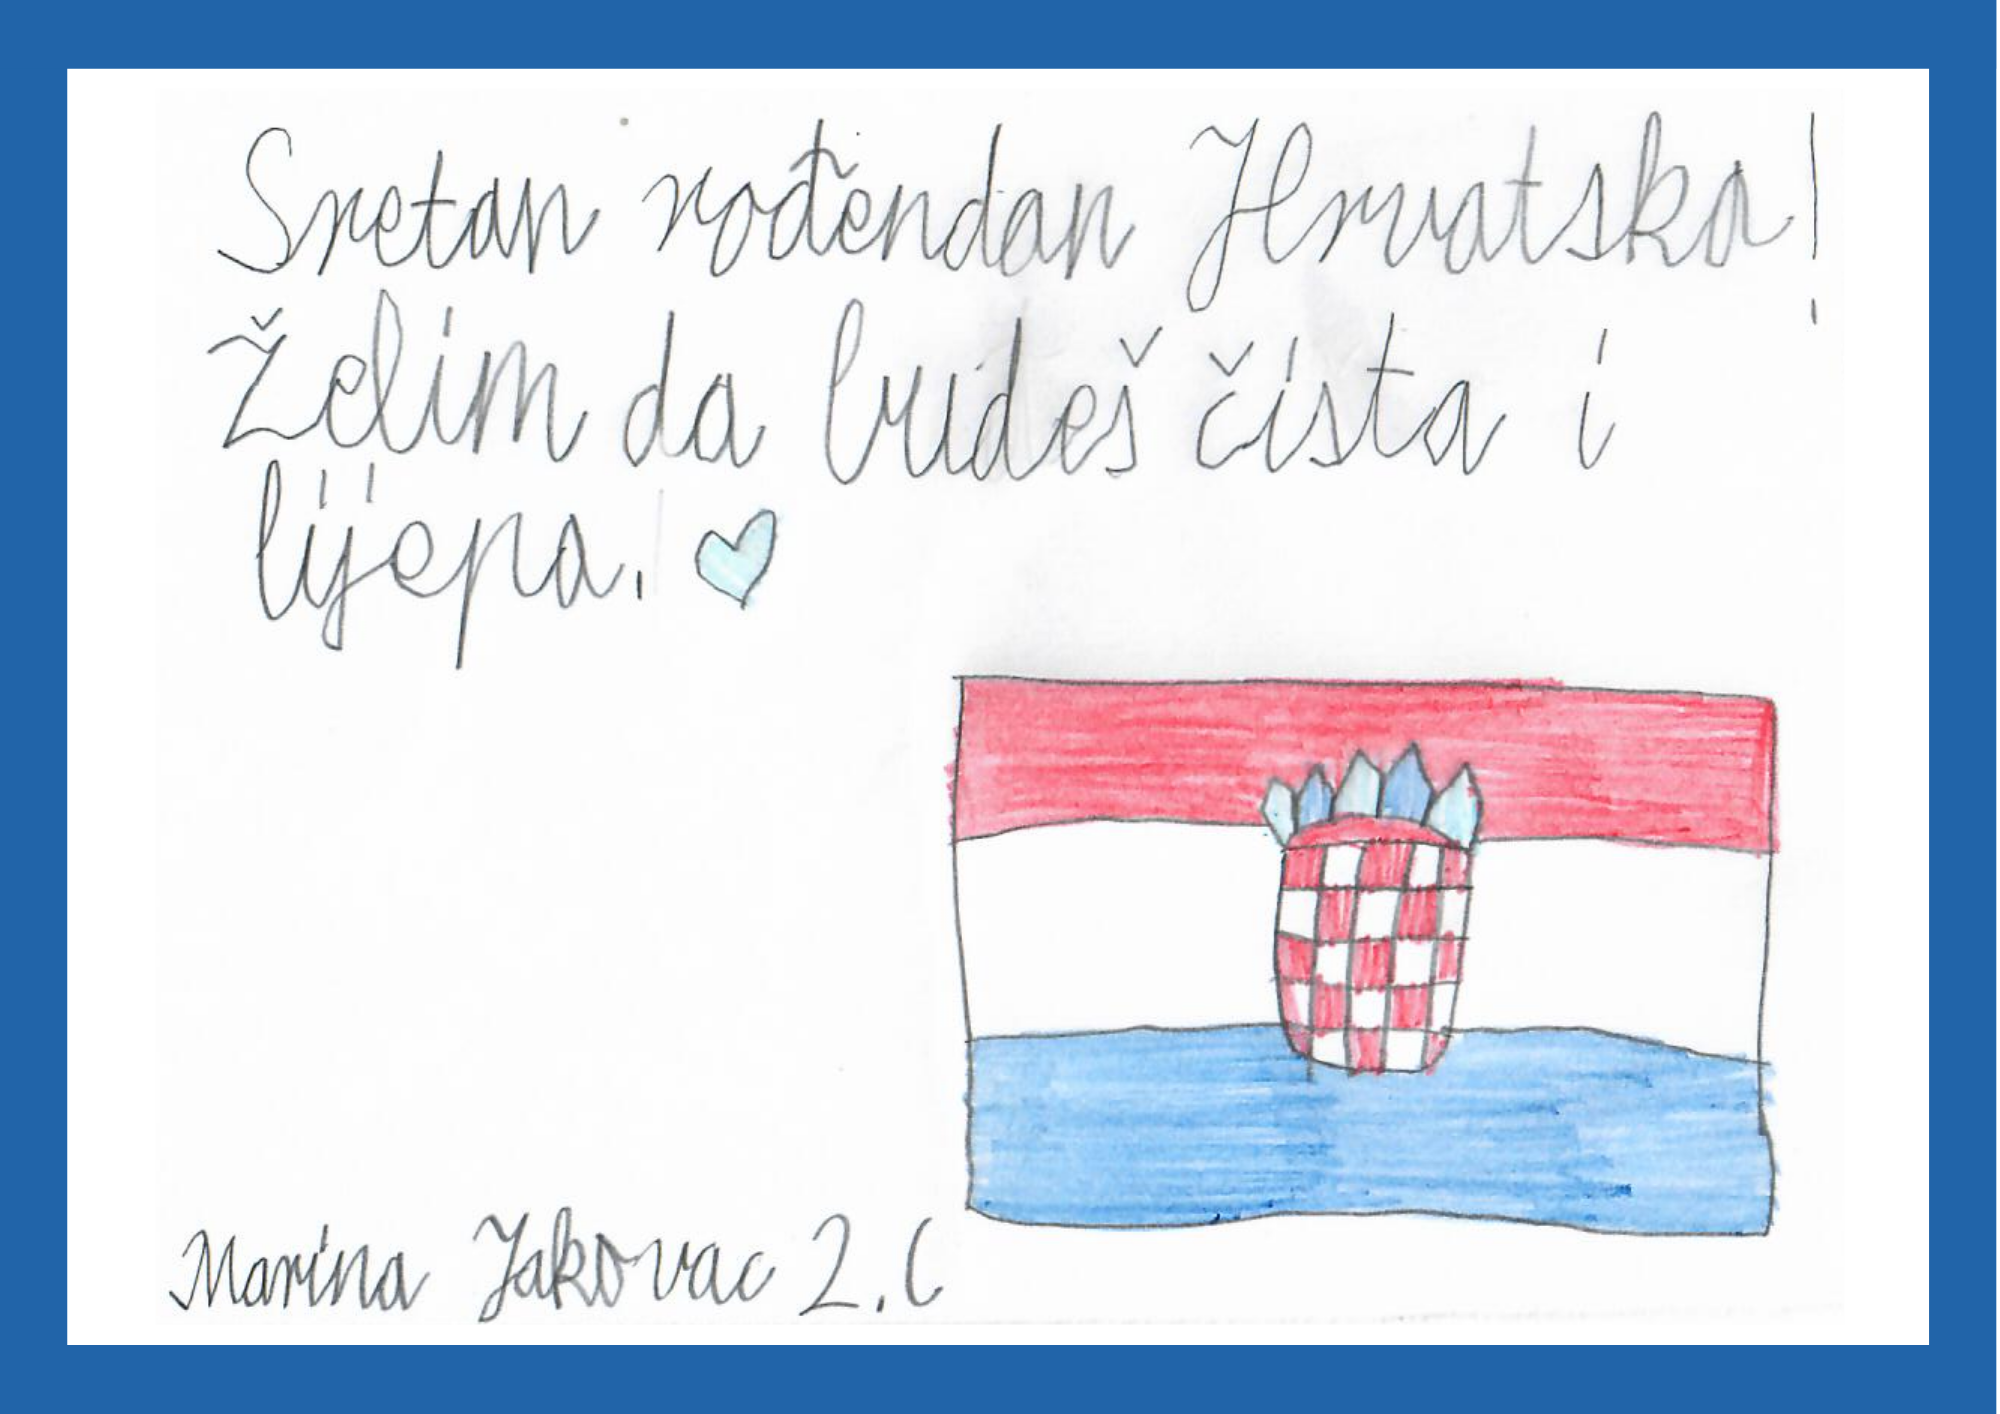 Sretan rođendan Hrvatska!
Želim da budeš čista i
lijepa.
Marina Jakovac 2.C